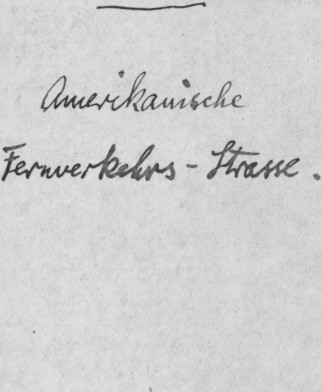 Amerikanische
Fernverkehrs - Strasse.